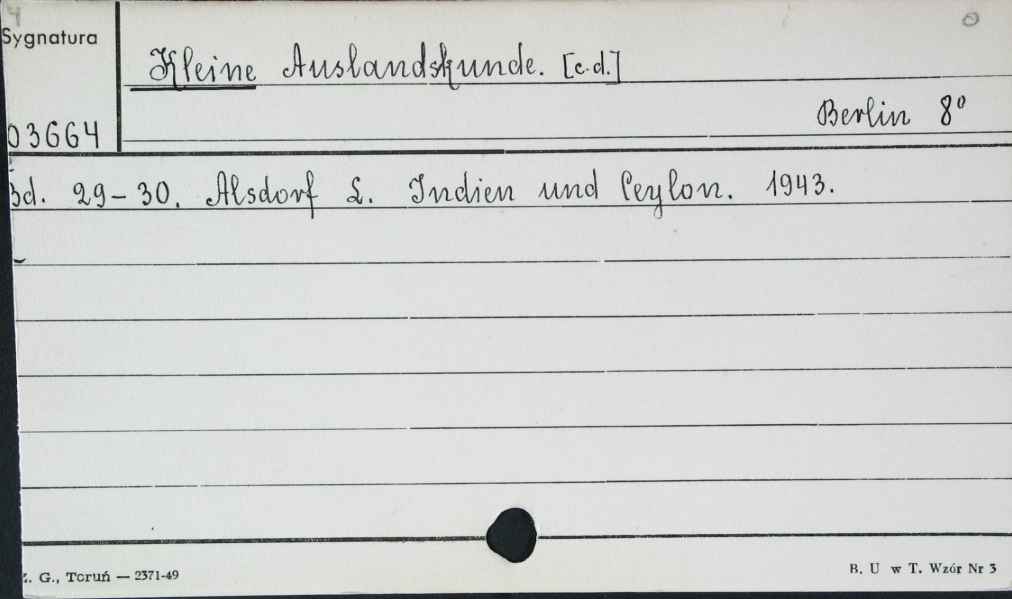 4
Sygnatura
Kleine Auslandskunde. [c.d.]
03664
Berlin 8°
Bd. 29–30. Alsdorf L. Indien und Ceylon. 1943.
G., Toruń — 2371-49
B. U w T. Wzór Nr 3